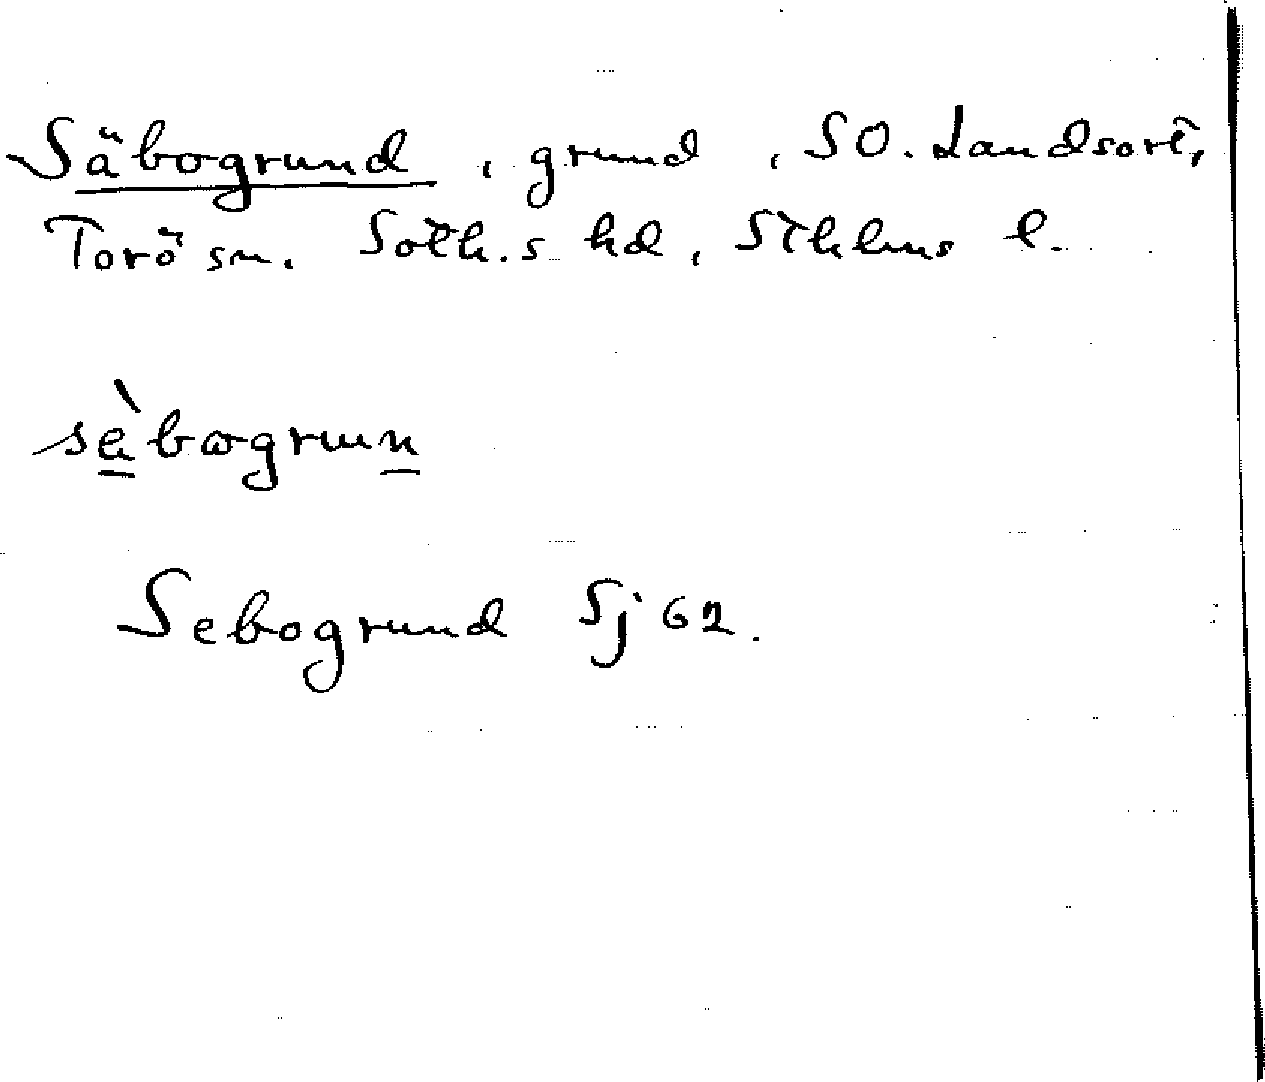 Säbogrund, grund, SO. Landsort,
Torö sn. Soth.s hd, Sthlms l.
sèbogrun
Sebogrund Sj 62.